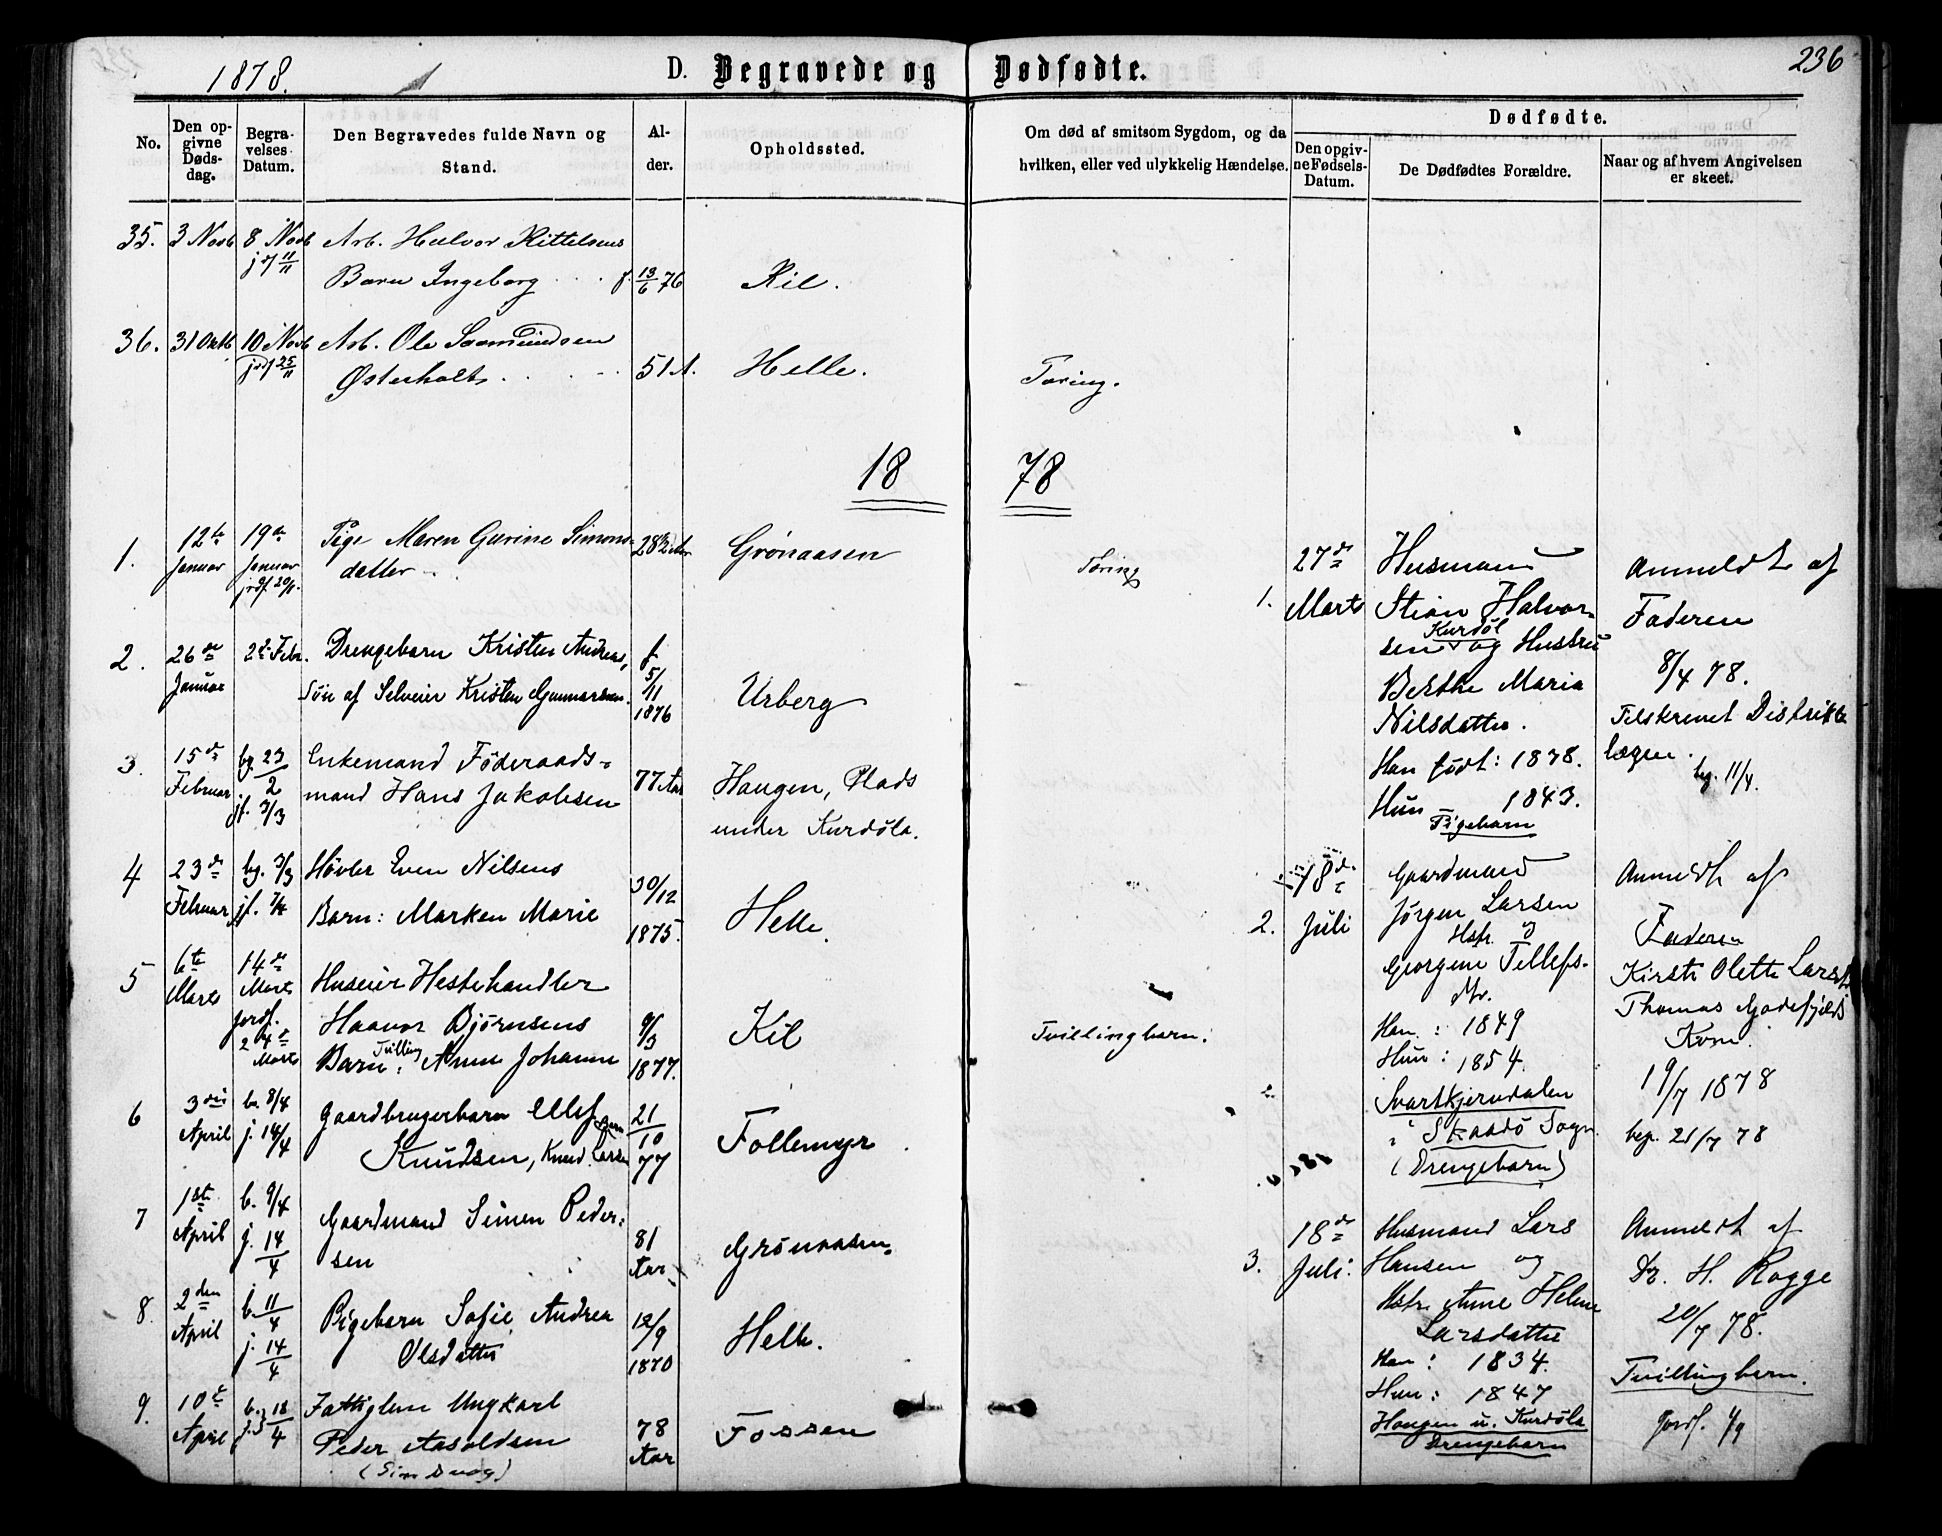 1878.
D. Begravede og Dødfødte.
236
No.
Den op-
givne
Døds-
dag.
Begra-
velses
Datum.
Den Begravedes fulde Navn og
Stand.
Al-
der.
Opholdssted.
Om død af smitsom Sygdom, og da
hvilken, eller ved ulykkelig Hændelse.
Dødfødte.
Den opgiv-
ne Fødsels-
Datum.
De Dødfødtes Forældre.
Naar og af hvem Angivelsen
er skeet.
35. 3 Novb 8 Novb Arb. Halvor Kittelsens
Barn Ingeborg f. 13/6 76 Kil.
36. 31 Oktb 10 Novb Arb. Ole Saamundsen
Østerholt 51 A. Helle. Tæring.
18 78
1. 12te Januar 19de Januar Pige Maren Gurine Simons-
datter Grønaasen Tæring
2. 26de Januar 2de Febr. Drengebarn Kristen Andreas,
Søn af Selveier Kristen Gunnarsen f. 5/11 1876 Urberg
3. 15de Februar bg. 23/2 jf. 3/3 Enkemand Føderaads-
mand Hans Jakobsen 77 Aar Haugen, Plads
under Kurdøla.
4 23de Februar bg. 3/3 Høvler Even Nilsens
Barn: Marken Marie 30/12 1875. Helle.
5 6te Marts 14de Marts jordf. 24de Marts Huseier Hestehandler
Haavor Bjørnsens
Barn: Tvilling Anne Johanne 9/3 1877. Kil Tvillingbarn.
6 3die April b. 8/4 j. 14/4 Gaardbrugerbarn Ellef
Knudsen, Knud Larsen 21/10 77 Follemyr
7 1ste April b. 9/4 j. 14/4 Gaardmand Simen Peder-
sen 81 Aar Grønaasen
8. 2den April b. 11/4 j. 14/4 Pigebarn Sofie Andrea
Olsdatter 12/9 1870 Helle.
9. 10de April b. j. 18/4 Fattiglem Ungkarl
Peder Aasoldsen 78 Aar Fossen
1. 27de Marts
Husmand
Stian Halvor-
sen Kurdøl og Hustru
Berthe Maria
Nilsdatter.
Han født: 1838.
Hun — 1843.
Pigebarn
Anmeldt af
Faderen
8/4 78.
Tilskrevet Distrikts
lægen.
bg. 11/4.
2. 18de Juli
Gaardmand
Jørgen Larsen
Hstr. og
Georgine Tellefs-
dtr.
Han : 1849
Hun : 1854.
Svartkjerndalen
i Skaadø Sogn.
(Drengebarn)
Anmeldt af
Faderen
Kirsti Olette Larsdt.
Thomas
Kone.
19/7 1878
beg. 21/7 78
3. 18de Juli.
Husmand Lars
Hansen og
Hstr. Anne Helene
Larsdatter
Han : 1834.
Hun : 1847
Haugen u. Kurdøla
Drengebarn
Anmeldt af
Dr. H. Rogge
20/7 78.
Tvillingbarn.